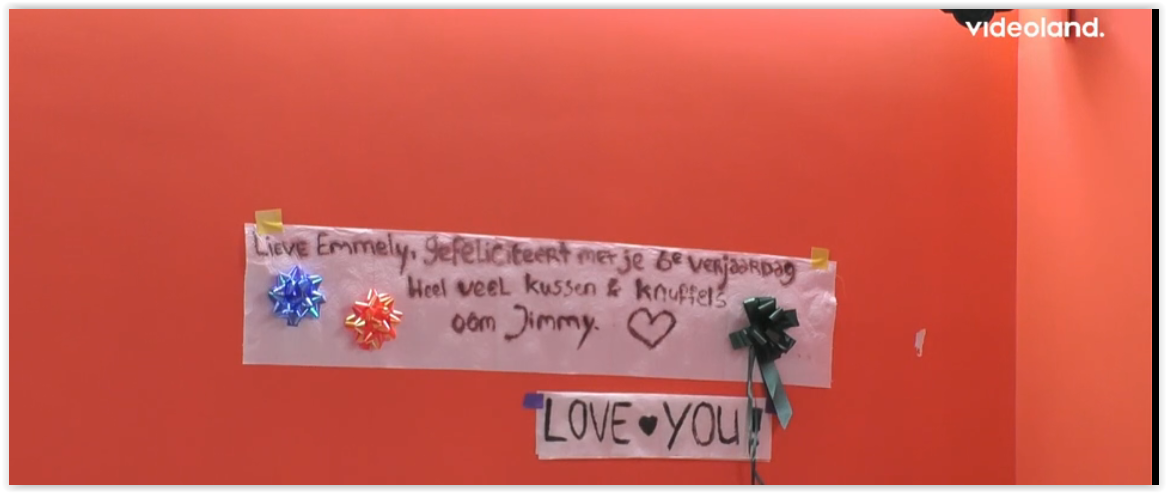 videoland.
Lieve Emmely, gefeliciteert met je 6e verjaardag
Heel veel kussen & knuffels
oom Jimmy.
LOVE YOU